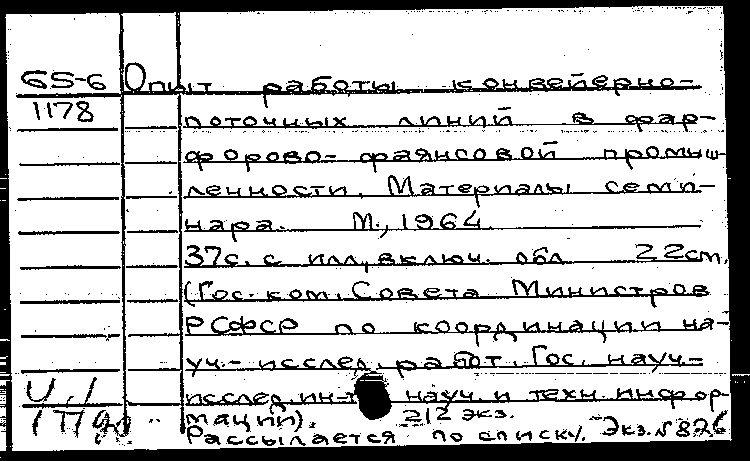 65-6 Опыт работы конвейерно-
1178 поточных линий в фар-
форово-фаянсовой промыш
ленности. Материалы семи-
нара. М., 1964.
37с. с илл., включ. обл. 22см.
(Гос. ком. Совета Министров
РСФСР по координации на-
уч.-исслед. работ. Гос. науч.-
исслед. ин-т науч. и техн. инфор-
мации). 212 экз.
Рассылается по списку. Экз. № 826